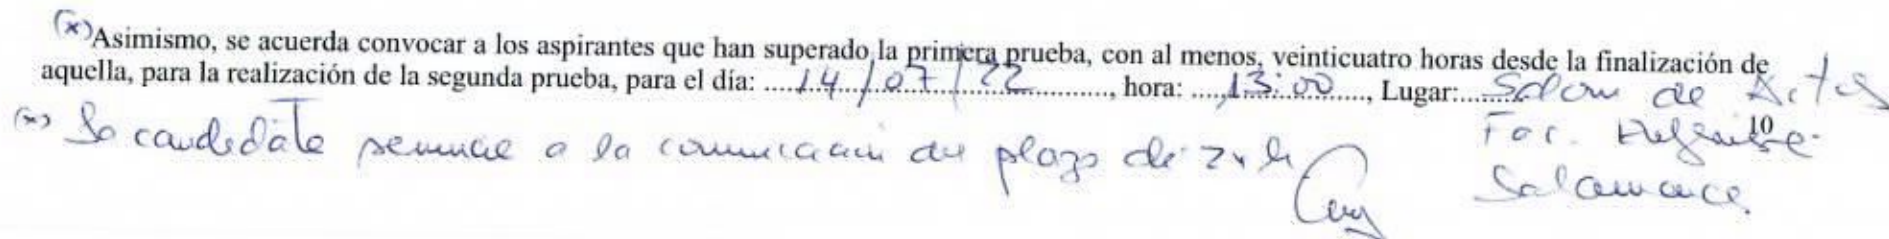 (x) Asimismo, se acuerda convocar a los aspirantes que han superado la primera prueba, con al menos, veinticuatro horas desde la finalización de
aquella, para la realización de la segunda prueba, para el día: .....14/07/22....., hora: .....13:00....., Lugar:.....Salon de Actos
10
Fac.
Salamanca.
(x) La candidata renuncia a la comunicación del plazo de 24 h